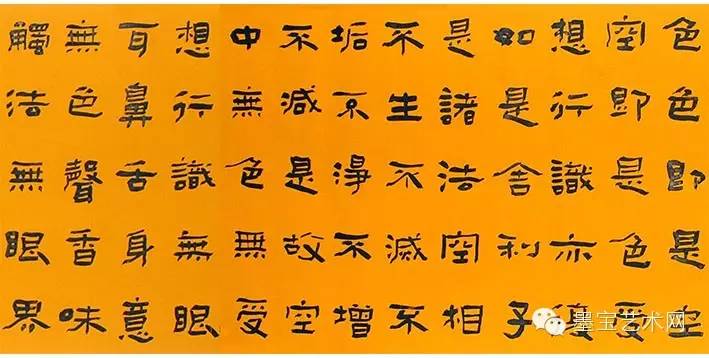 色色即是空
空即是色受
想行識亦復
如是舍利子
是諸法空相
不生不滅不
垢不淨不增
不減是故空
中無色無受
想行識無眼
耳鼻舌身意
無色聲香味
觸法無眼界
墨宝艺术网